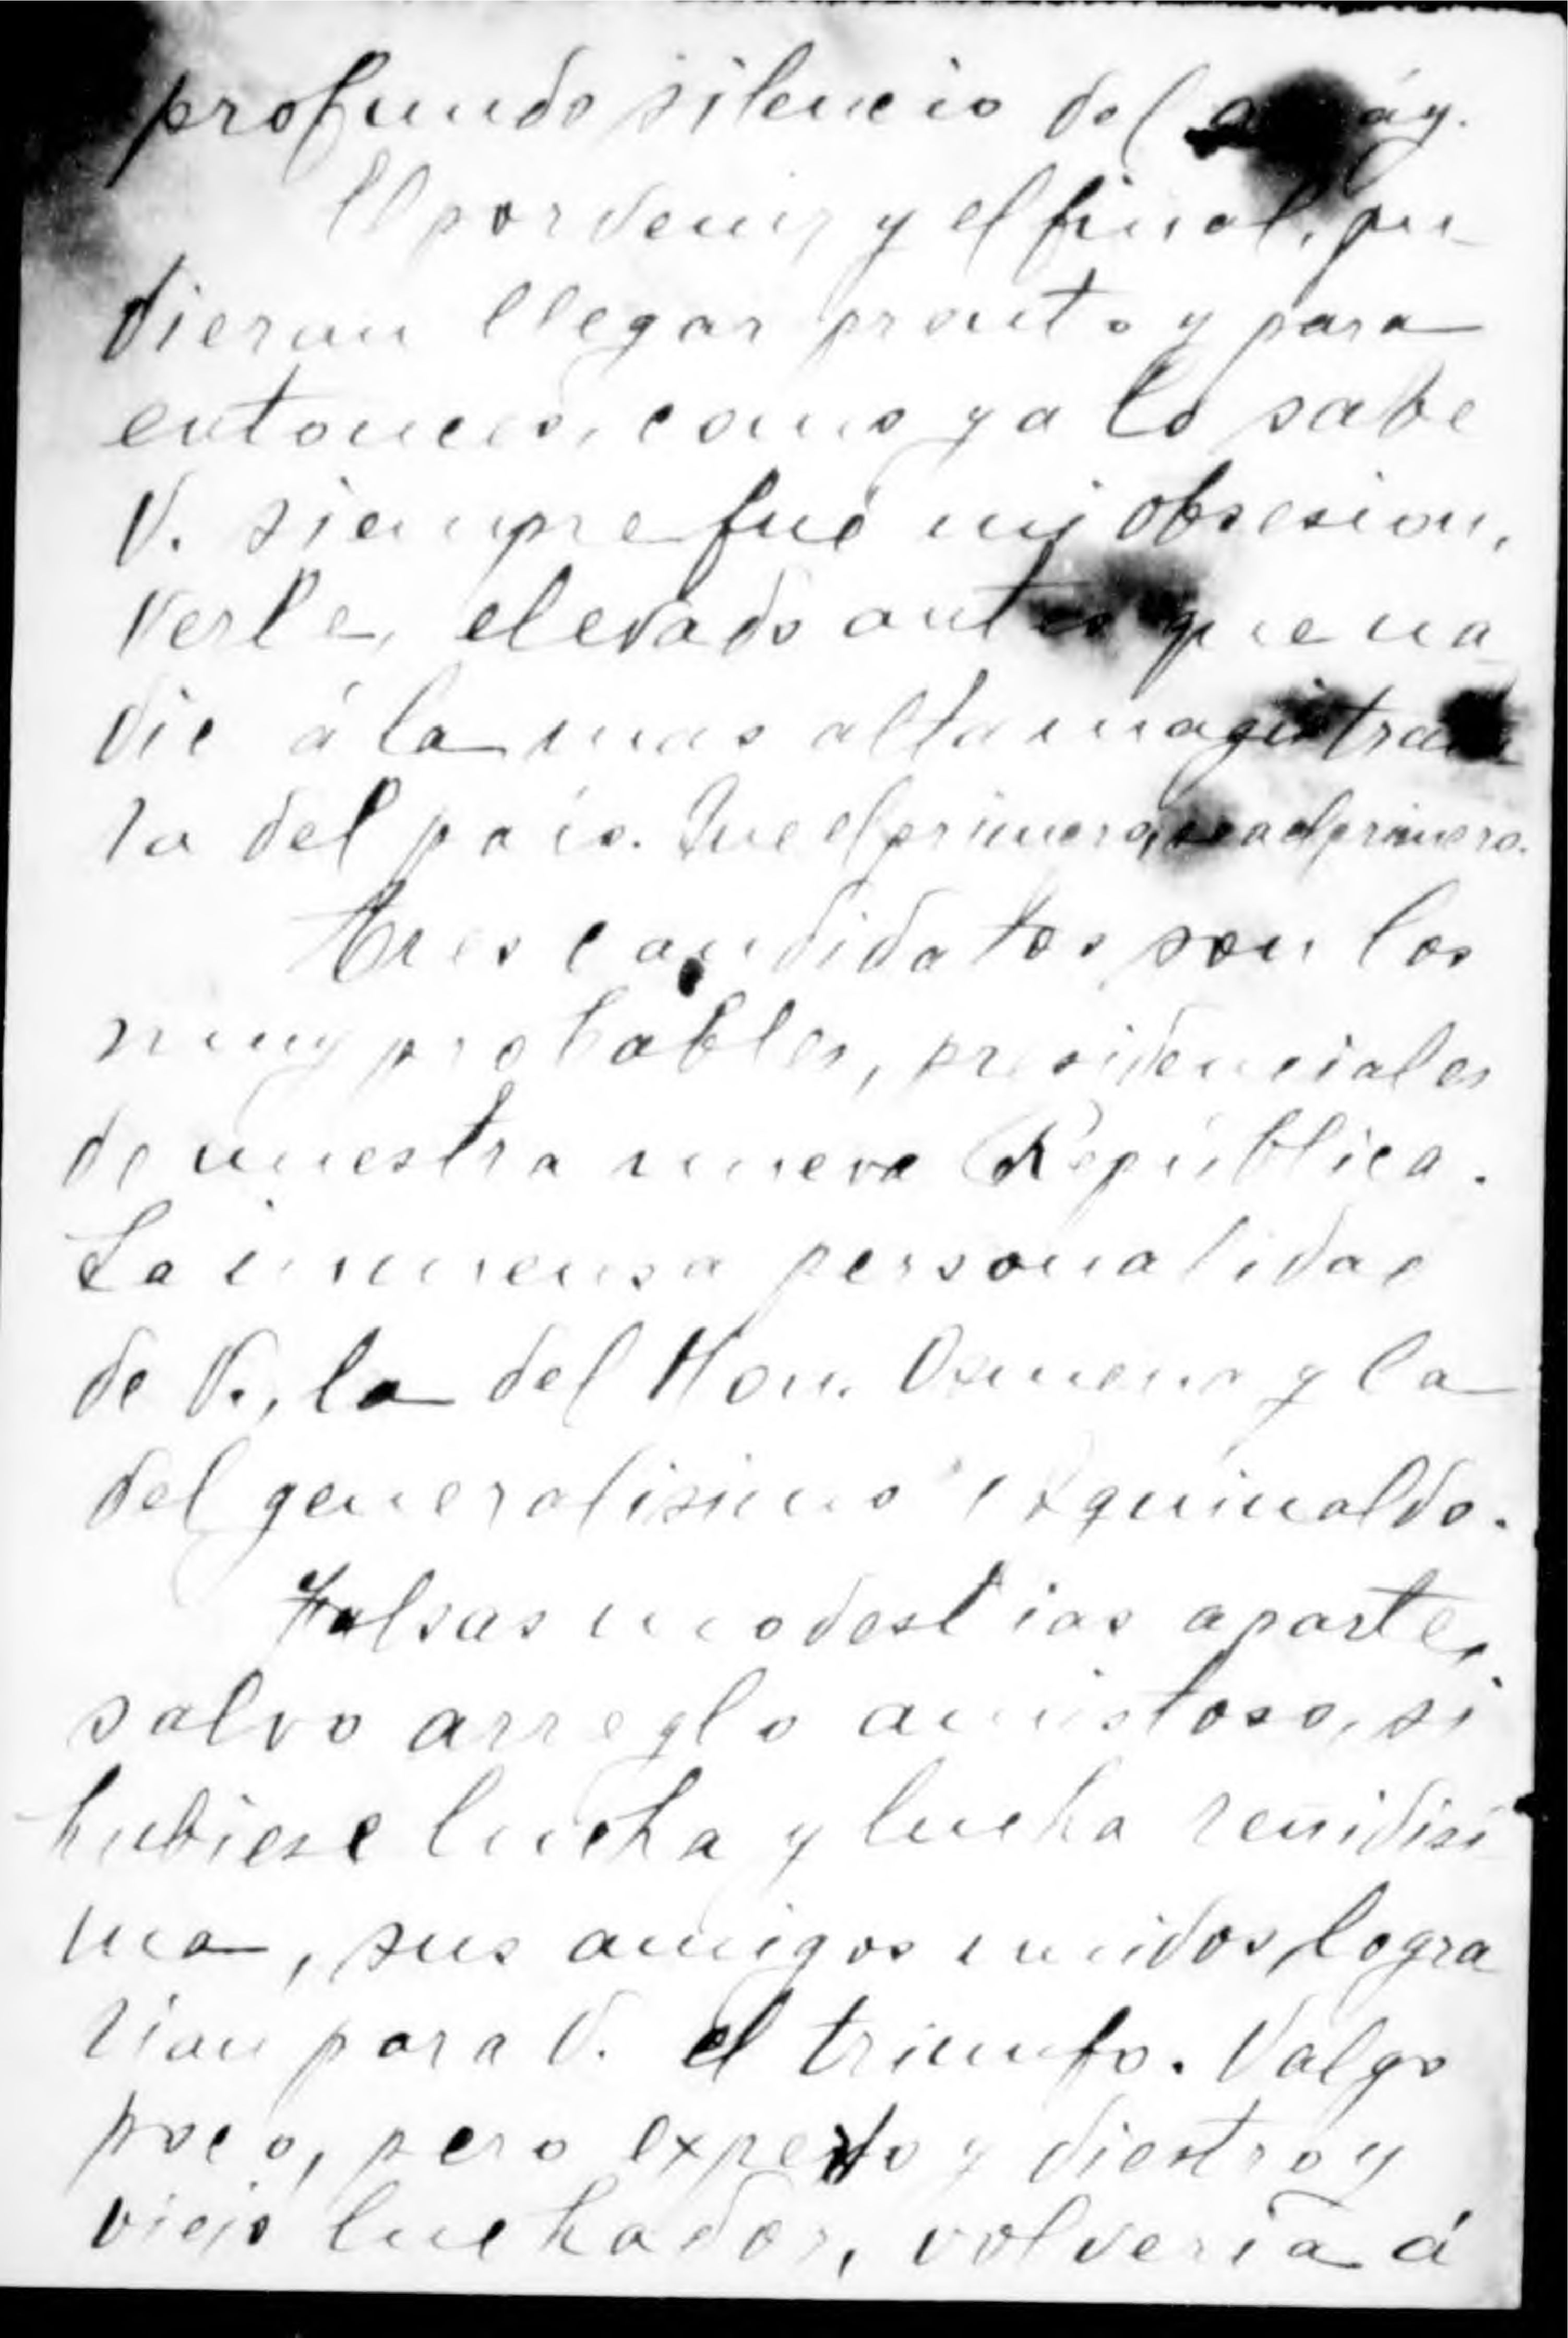 profundo silencio del
El porvenir, y el final, pu-
dieran llegar pronto y para
entonces, como ya lo sabe
V. siempre fué mi obsesion,
verle, elevado antes que na-
die á la mas alta magistratu-
ra del pais. Que el primero, sea el primero.
Tres candidatos son los
muy probables, presidenciales
de nuestra nueva República.
La inmensa personalidad
de V., la del Hon. Osmena y la
del generalisimo Aguinaldo.
Falsas modestias aparte,
salvo arreglo amistoso, si
hubiese lucha y lucha reñidisi
ma, sus amigos unidos, logra
rian para V. el triunfo. Valgo
poco, pero experto y diestro y
viejo luchador, volveria á